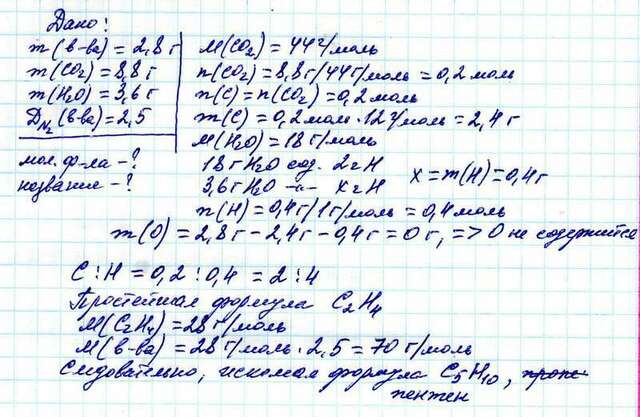 Дано:
m(в-ва) = 2,8 г
m(CO₂) = 8,8 г
m(H₂O) = 3,6 г
D_N₂(в-ва) = 2,5
мол. ф-ла - ?
название - ?
M(CO₂) = 44 г/моль
n(CO₂) = 8,8 г/44 г/моль = 0,2 моль
n(C) = n(CO₂) = 0,2 моль
m(C) = 0,2 моль · 12 г/моль = 2,4 г
M(H₂O) = 18 г/моль
18 г H₂O сод. 2 г H
3,6 г H₂O -"- x г H x = m(H) = 0,4 г
n(H) = 0,4 г/1 г/моль = 0,4 моль
m(O) = 2,8 г - 2,4 г - 0,4 г = 0 г, => O не содержится
C : H = 0,2 : 0,4 = 2 : 4
Простейшая формула C₂H₄
M(C₂H₄) = 28 г/моль
M(в-ва) = 28 г/моль · 2,5 = 70 г/моль
Следовательно, искомая формула C₅H₁₀,
пентен